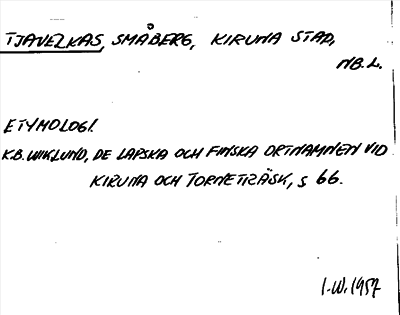 TJAVELKAS, SMÅBERG, KIRUNA STAD,
NB.L.
ETYMOLOGI.
K.B. WIKLUND, DE LAPSKA OCH FINSKA ORTNAMNEN VID
KIRUNA OCH TORNETRÄSK, S 66.
I.W. 1957